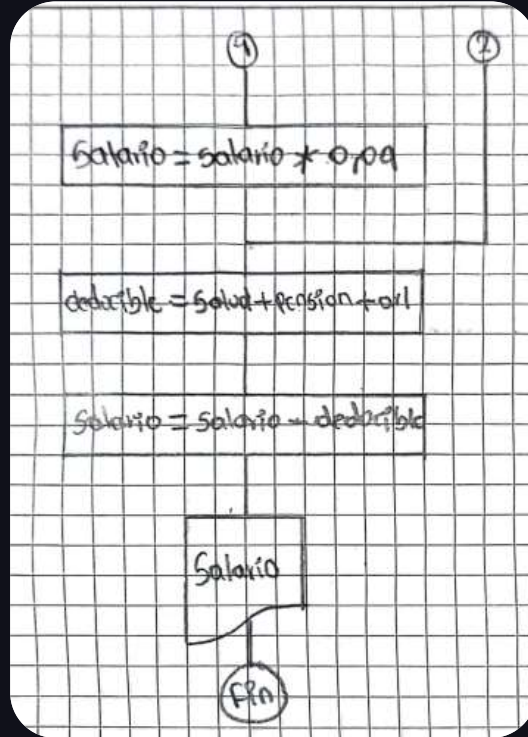 1 2
Salario = salario * 0,09
deducible = Salud + pension + arl
Salario = Salario - deducible
Salario
Fin